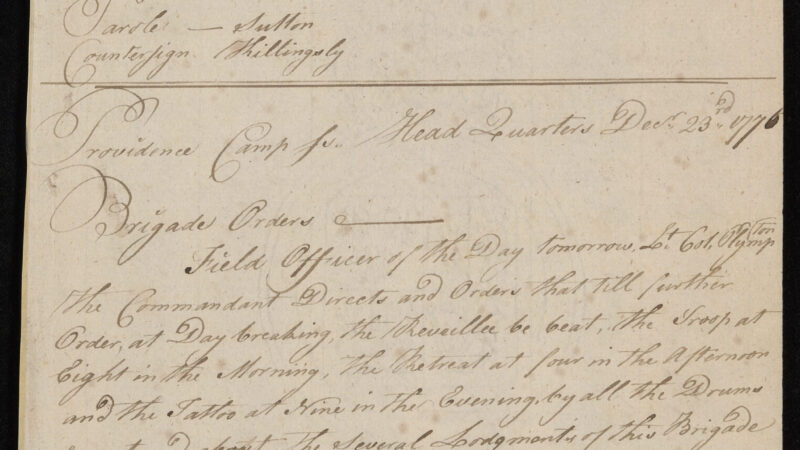 Parole — Sutton
Countersign Killingsly
Providence Camp ss. Head Quarters Decr. 23rd. 1776
Brigade Orders
Field Officer of the Day tomorrow, Lt. Col. Olympton
The Commandant Directs and Orders that till further
Order, at Day breaking, the Reveillee be beat, the Troop at
Eight in the Morning, the Retreat at four in the Afternoon
and the Tattoo at Nine in the Evening, by all the Drums
about the Several Lodgments of this Brigade